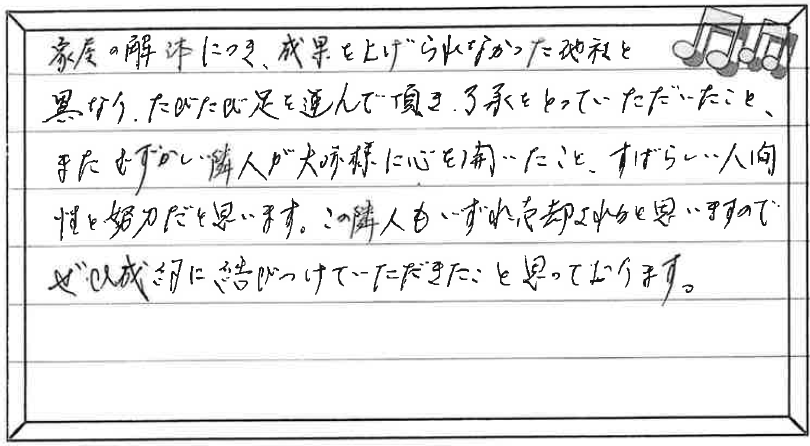 家屋の解体につき、成果を上げられなかった他社と
異なり、たびたび足を運んで頂き、了承をとっていただいたこと、
またむずかしい隣人が大跡様に心を開いたこと、すばらしい人間
性と努力だと思います。この隣人もいずれ売却されると思いますので
ぜひ成約に結びつけていただきたいと思っております。